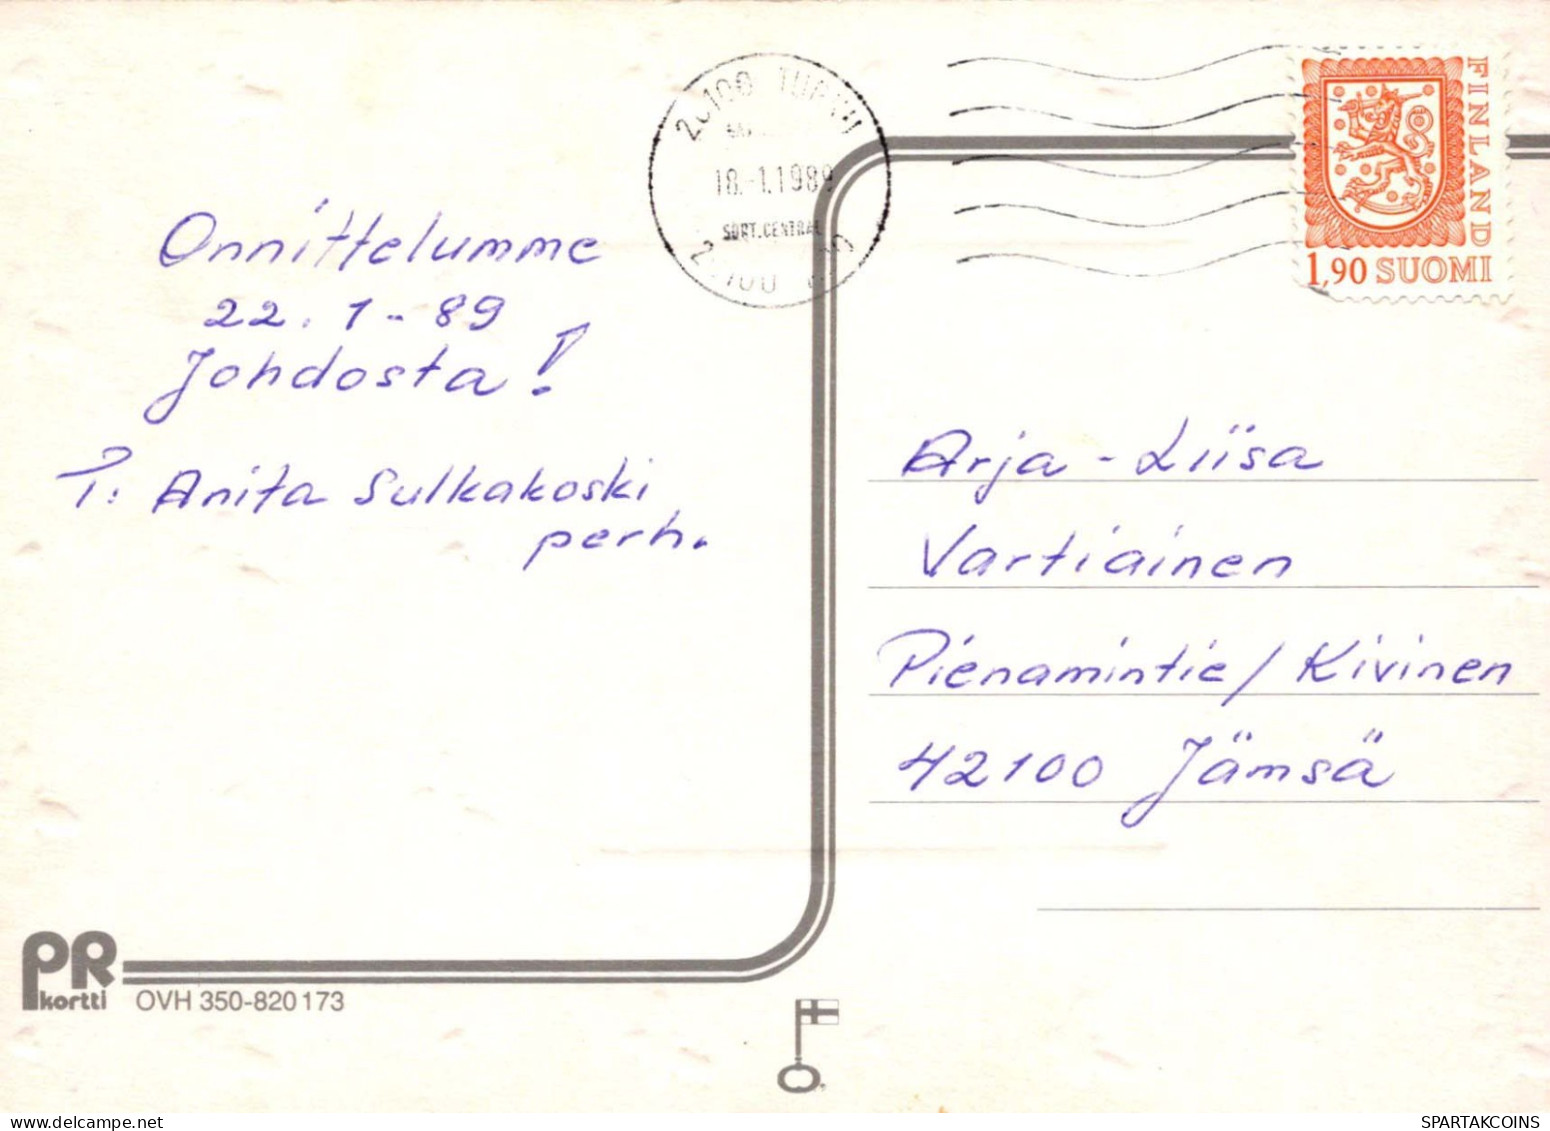 Onnittelumme
22.1-89
Johdosta!
T: Anita Sulkakoski
perh.
20100
18.-1.1989
SORT.CENTRAL
FINLAND
1,90 SUOMI
Arja-Liisa
Vartiainen
Pienamintie/Kivinen
42100 Jämsä
PR
kortti OVH 350-820173
SPARTAKCOINS